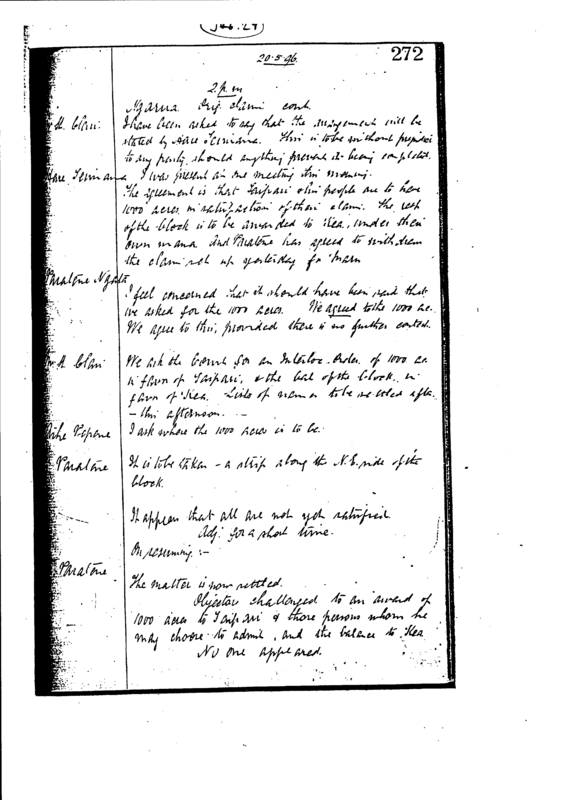 272
20·5·96
2 p m
Ngarua Orig. claim cont.
H. Clari: I have been asked to say that the arrangement will be
stated by Hare Teimana. This is to be without prejudice
to any party should anything prevent it being completed.
Hare Teimana I was present at our meeting this morning.
The agreement is that Taipari & his people are to have
1000 acres in satisfaction of their claim. The rest
of the block is to be awarded to Kea, under their
own mana and Paratene has agreed to withdraw
the claim set up yesterday for
Paratene Ngata
I feel concerned that it should have been said that
we asked for the 1000 acres. We agreed to the 1000 ac.
We agree to this, provided there is no further contest.
H. Clari We ask the Court for an Interloc. Order of 1000 ac
in favor of Taipari, & the bal. of the block in
favor of Kea. Lists of names to be settled after
– this afternoon. –
Pepene I ask where the 1000 acres is to be.
Paratene It is to be taken – a strip along the N.E. side of the
block.
It appears that all are not yet satisfied
Adj. for a short time.
On resuming :–
Paratene
The matter is now settled.
Objectors challenged to an award of
1000 acres to Taipari & those persons whom he
may choose to admit, and the balance to Kea
No one appeared.